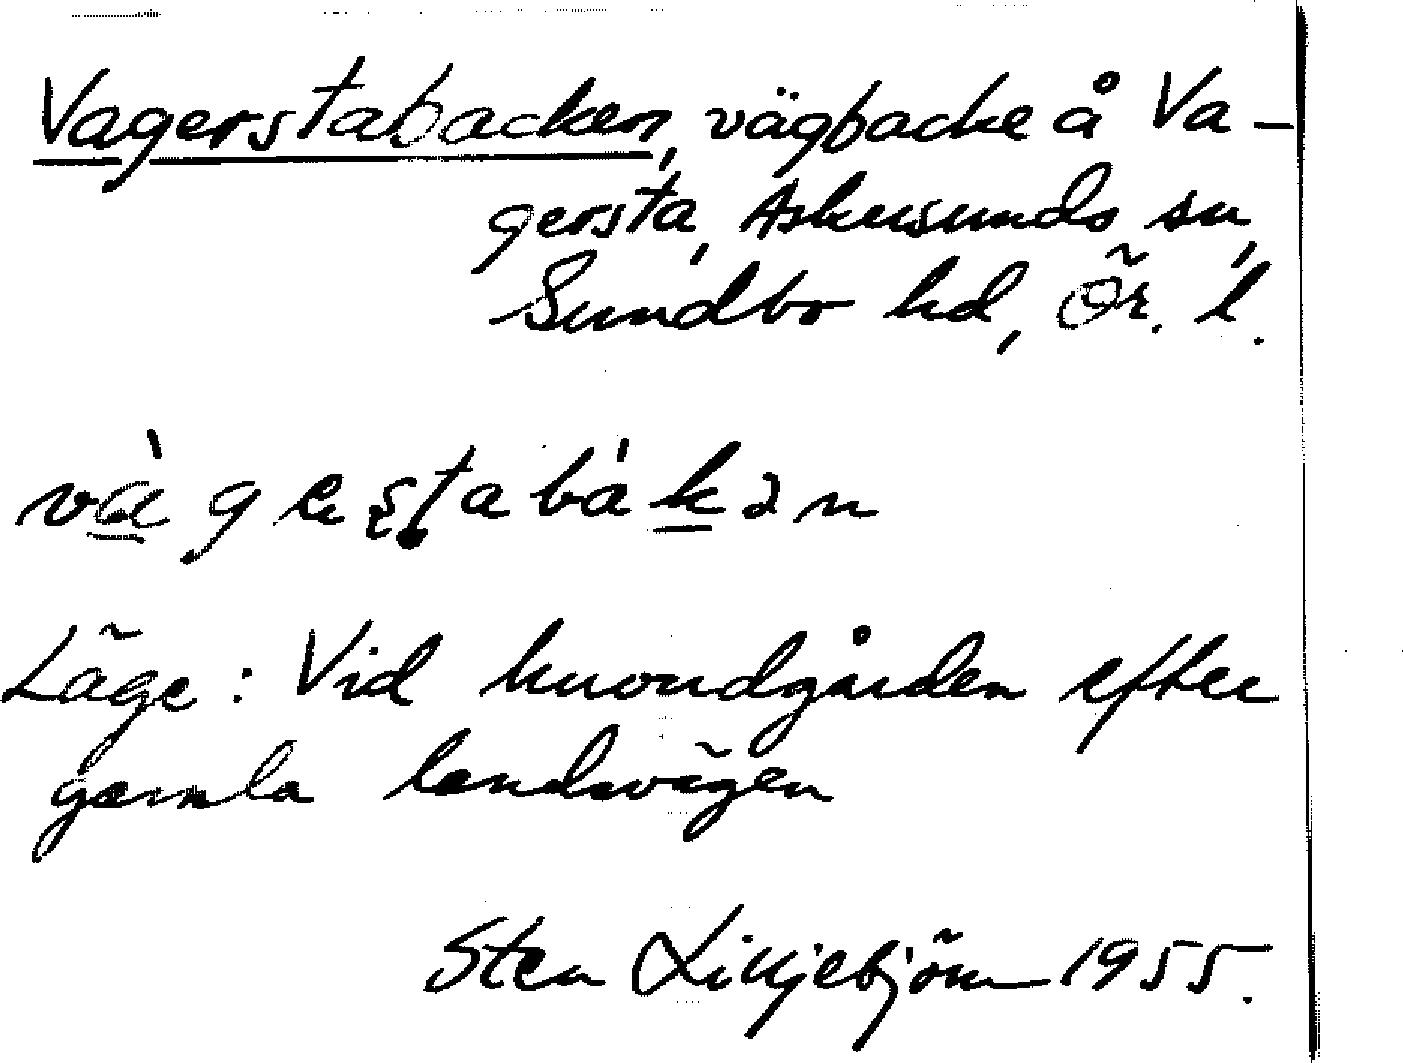 Vagerstabacken, vägbacke å Va-
gersta, Askersunds sn,
Sundbo hd, Ör. l.
vàgeʂtabákən
Läge: Vid kvarndgården efter
gamla landsvägen
Sten Lilljebjörn 1955.